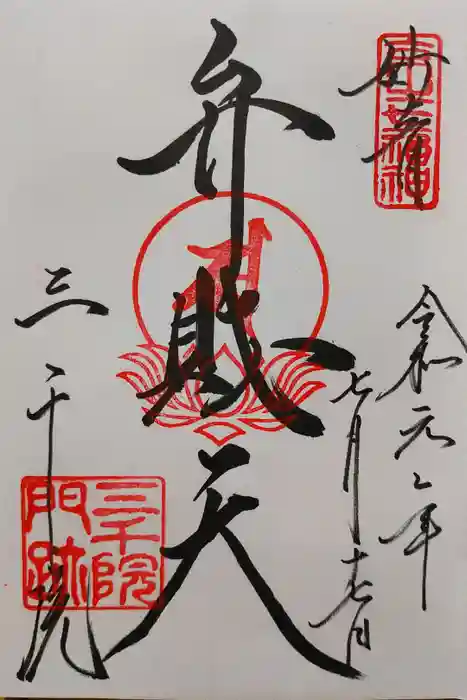 妙音
弁財天
令和元年
七月十七日
三千院
三千院
門跡